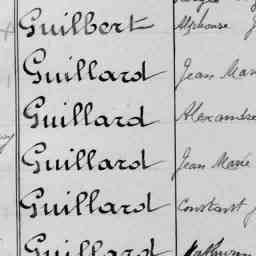 Guilbert Alphonse
Guillard Jean Marie
Guillard Alexandre
Guillard Jean Marie
Guillard Constant
Guillard Mathurin